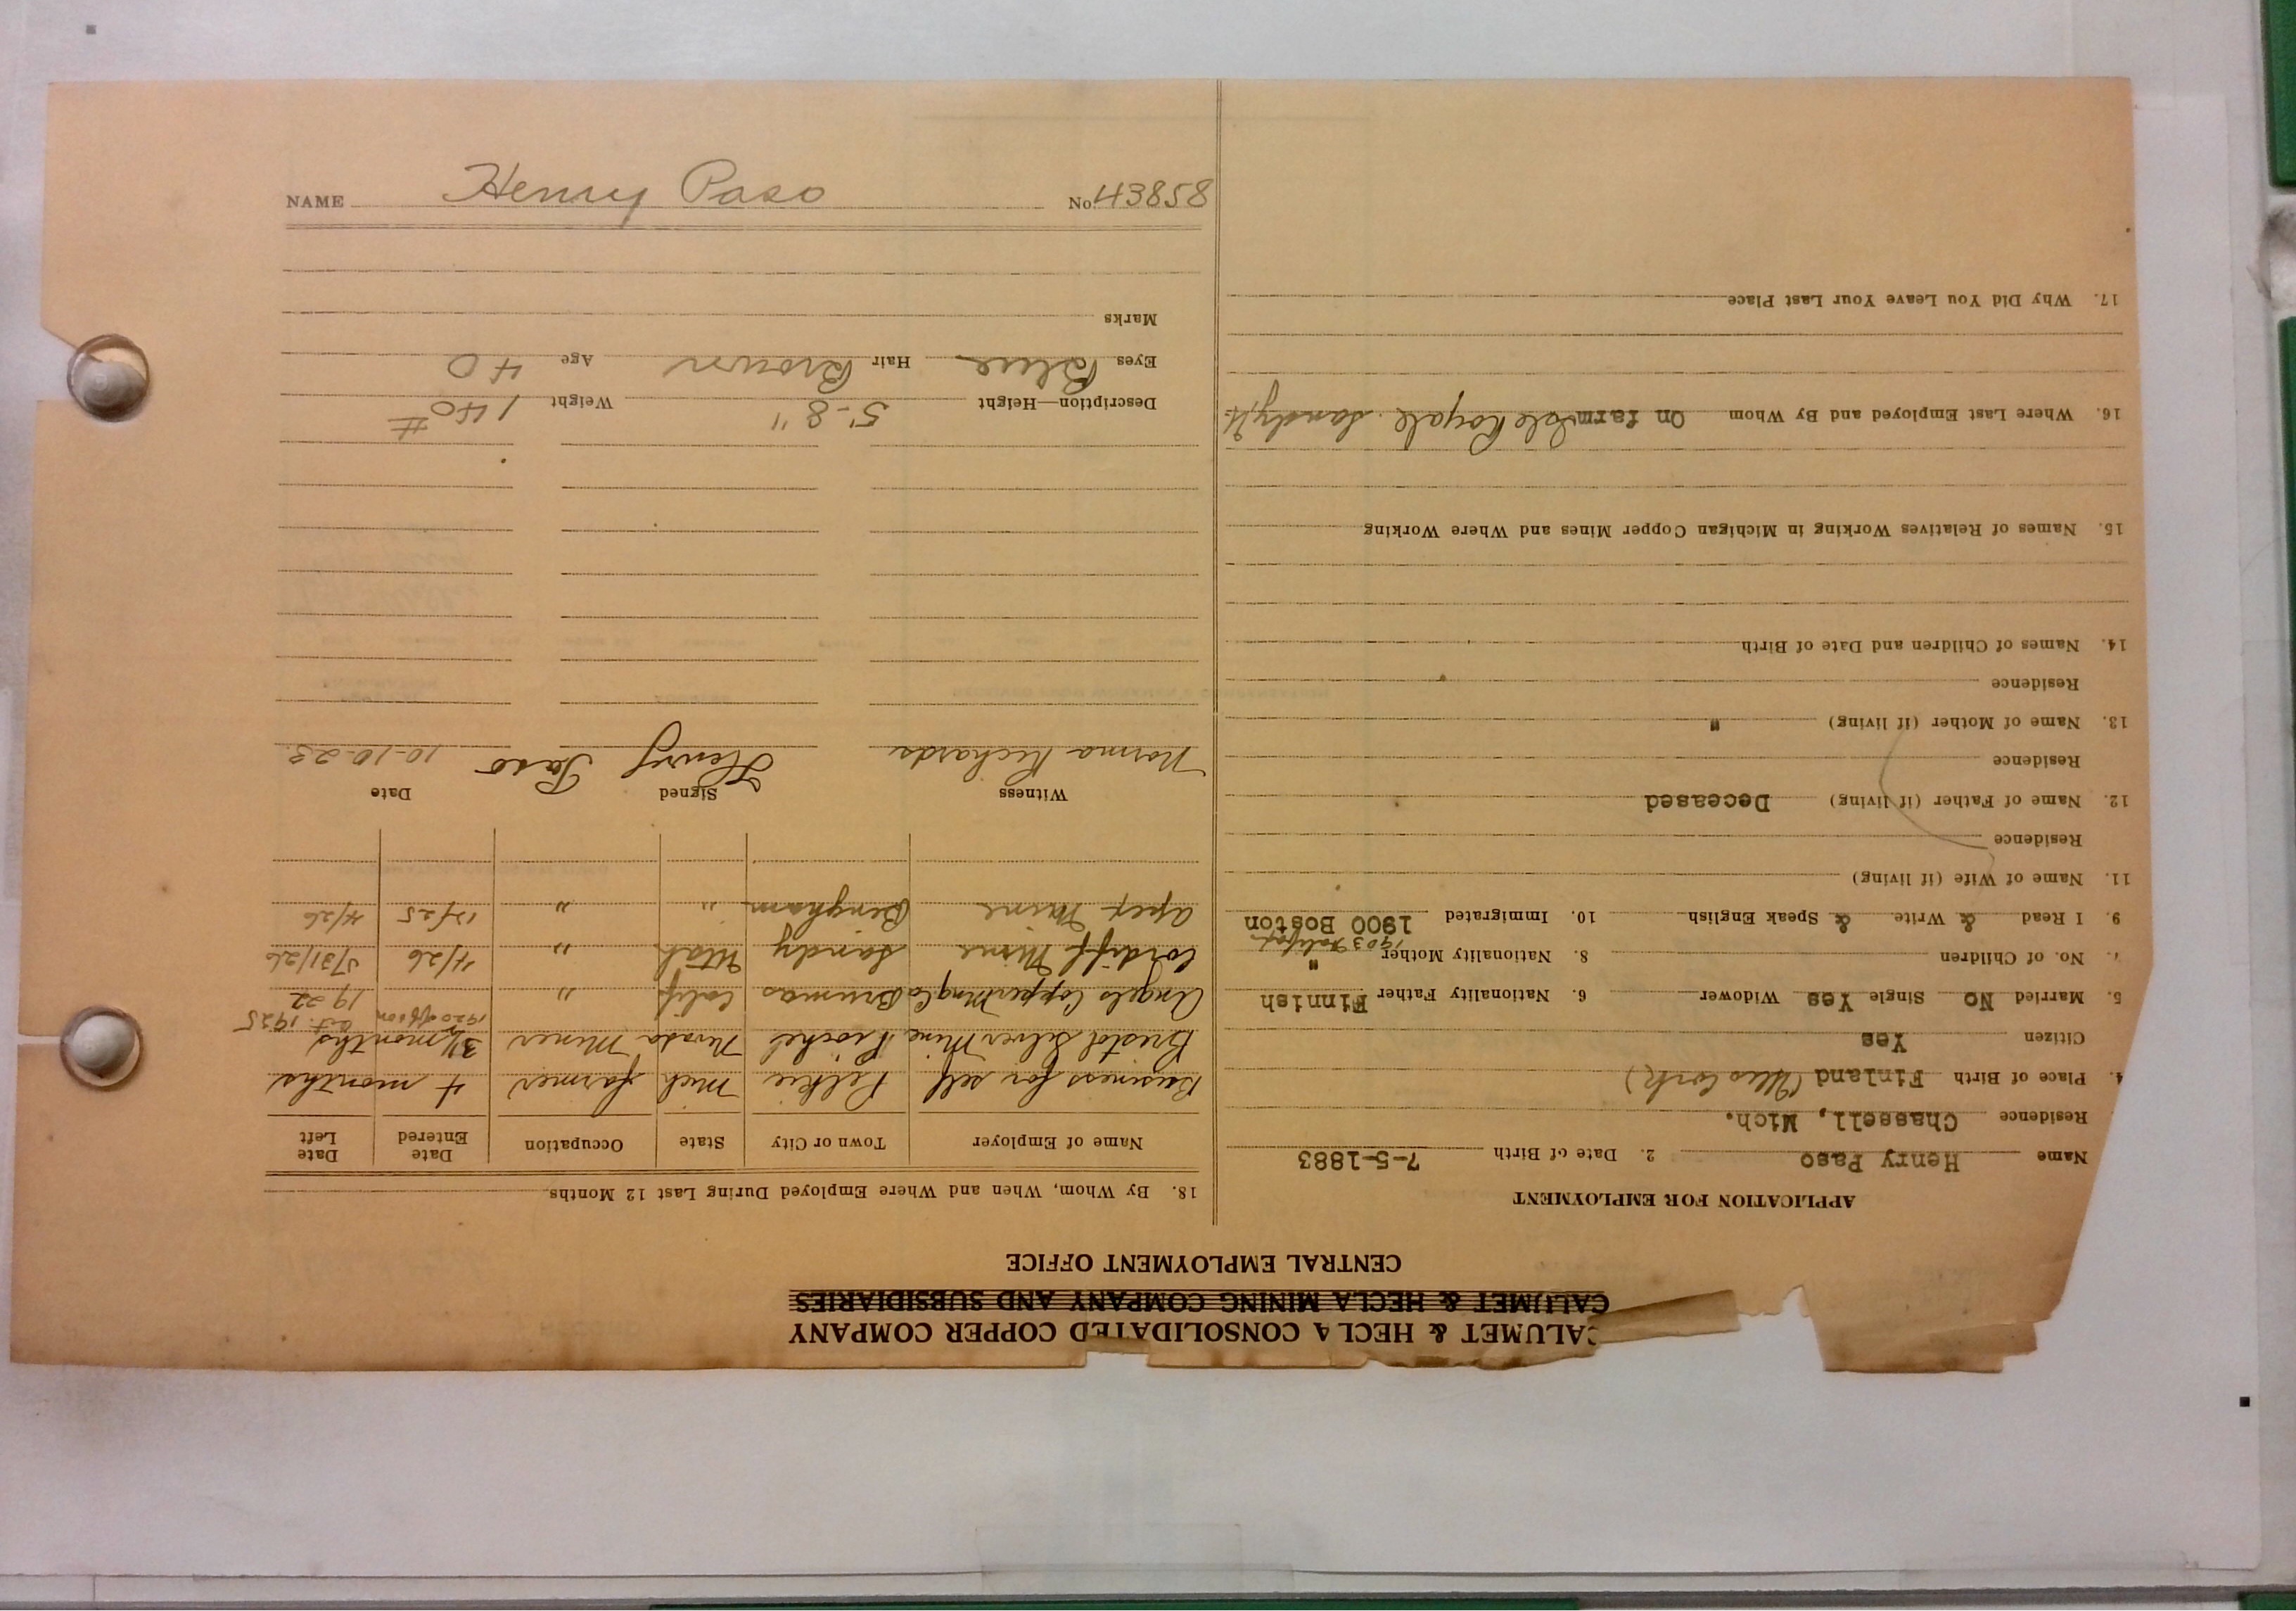 CALUMET & HECLA CONSOLIDATED COPPER COMPANY
CALUMET & HECLA MINING COMPANY AND SUBSIDIARIES
CENTRAL EMPLOYMENT OFFICE
APPLICATION FOR EMPLOYMENT
Name Henry Paso 2. Date of Birth 7-5-1883
Residence Chassell, Mich.
4. Place of Birth Finland
Citizen Yes
5. Married No Single Yes Widower 6. Nationality Father Finnish
7. No. of Children 8. Nationality Mother "
1903 Halifax
9. I Read & Write & Speak English 10. Immigrated 1900 Boston
11. Name of Wife (if living)
Residence
12. Name of Father (if living) Deceased
Residence
13. Name of Mother (if living) "
Residence
14. Names of Children and Date of Birth
15. Names of Relatives Working in Michigan Copper Mines and Where Working
16. Where Last Employed and By Whom On farm Isle Royale. Sandy
17. Why Did You Leave Your Last Place
18. By Whom, When and Where Employed During Last 12 Months
Name of Employer Town or City State Occupation Date Entered Date Left
Business for self Pelkie Mich farmer 4 months
Bristol Silver Mine Pioche Nevada Miner 3½ months
1920 off & on Oct. 1925
Angels Copper Mng Co Calif " 1922
Cardiff Mine Sandy Utah " 4/26 5/31/26
Apex Mine Bingham " " 12/25 4/26
Witness Signed Date
Norma Richards Henry Paso 10-10-23.
Description—Height 5'-8" Weight 140#
Eyes Blue Hair Brown Age 40
Marks
NAME Henry Paso No. 43858